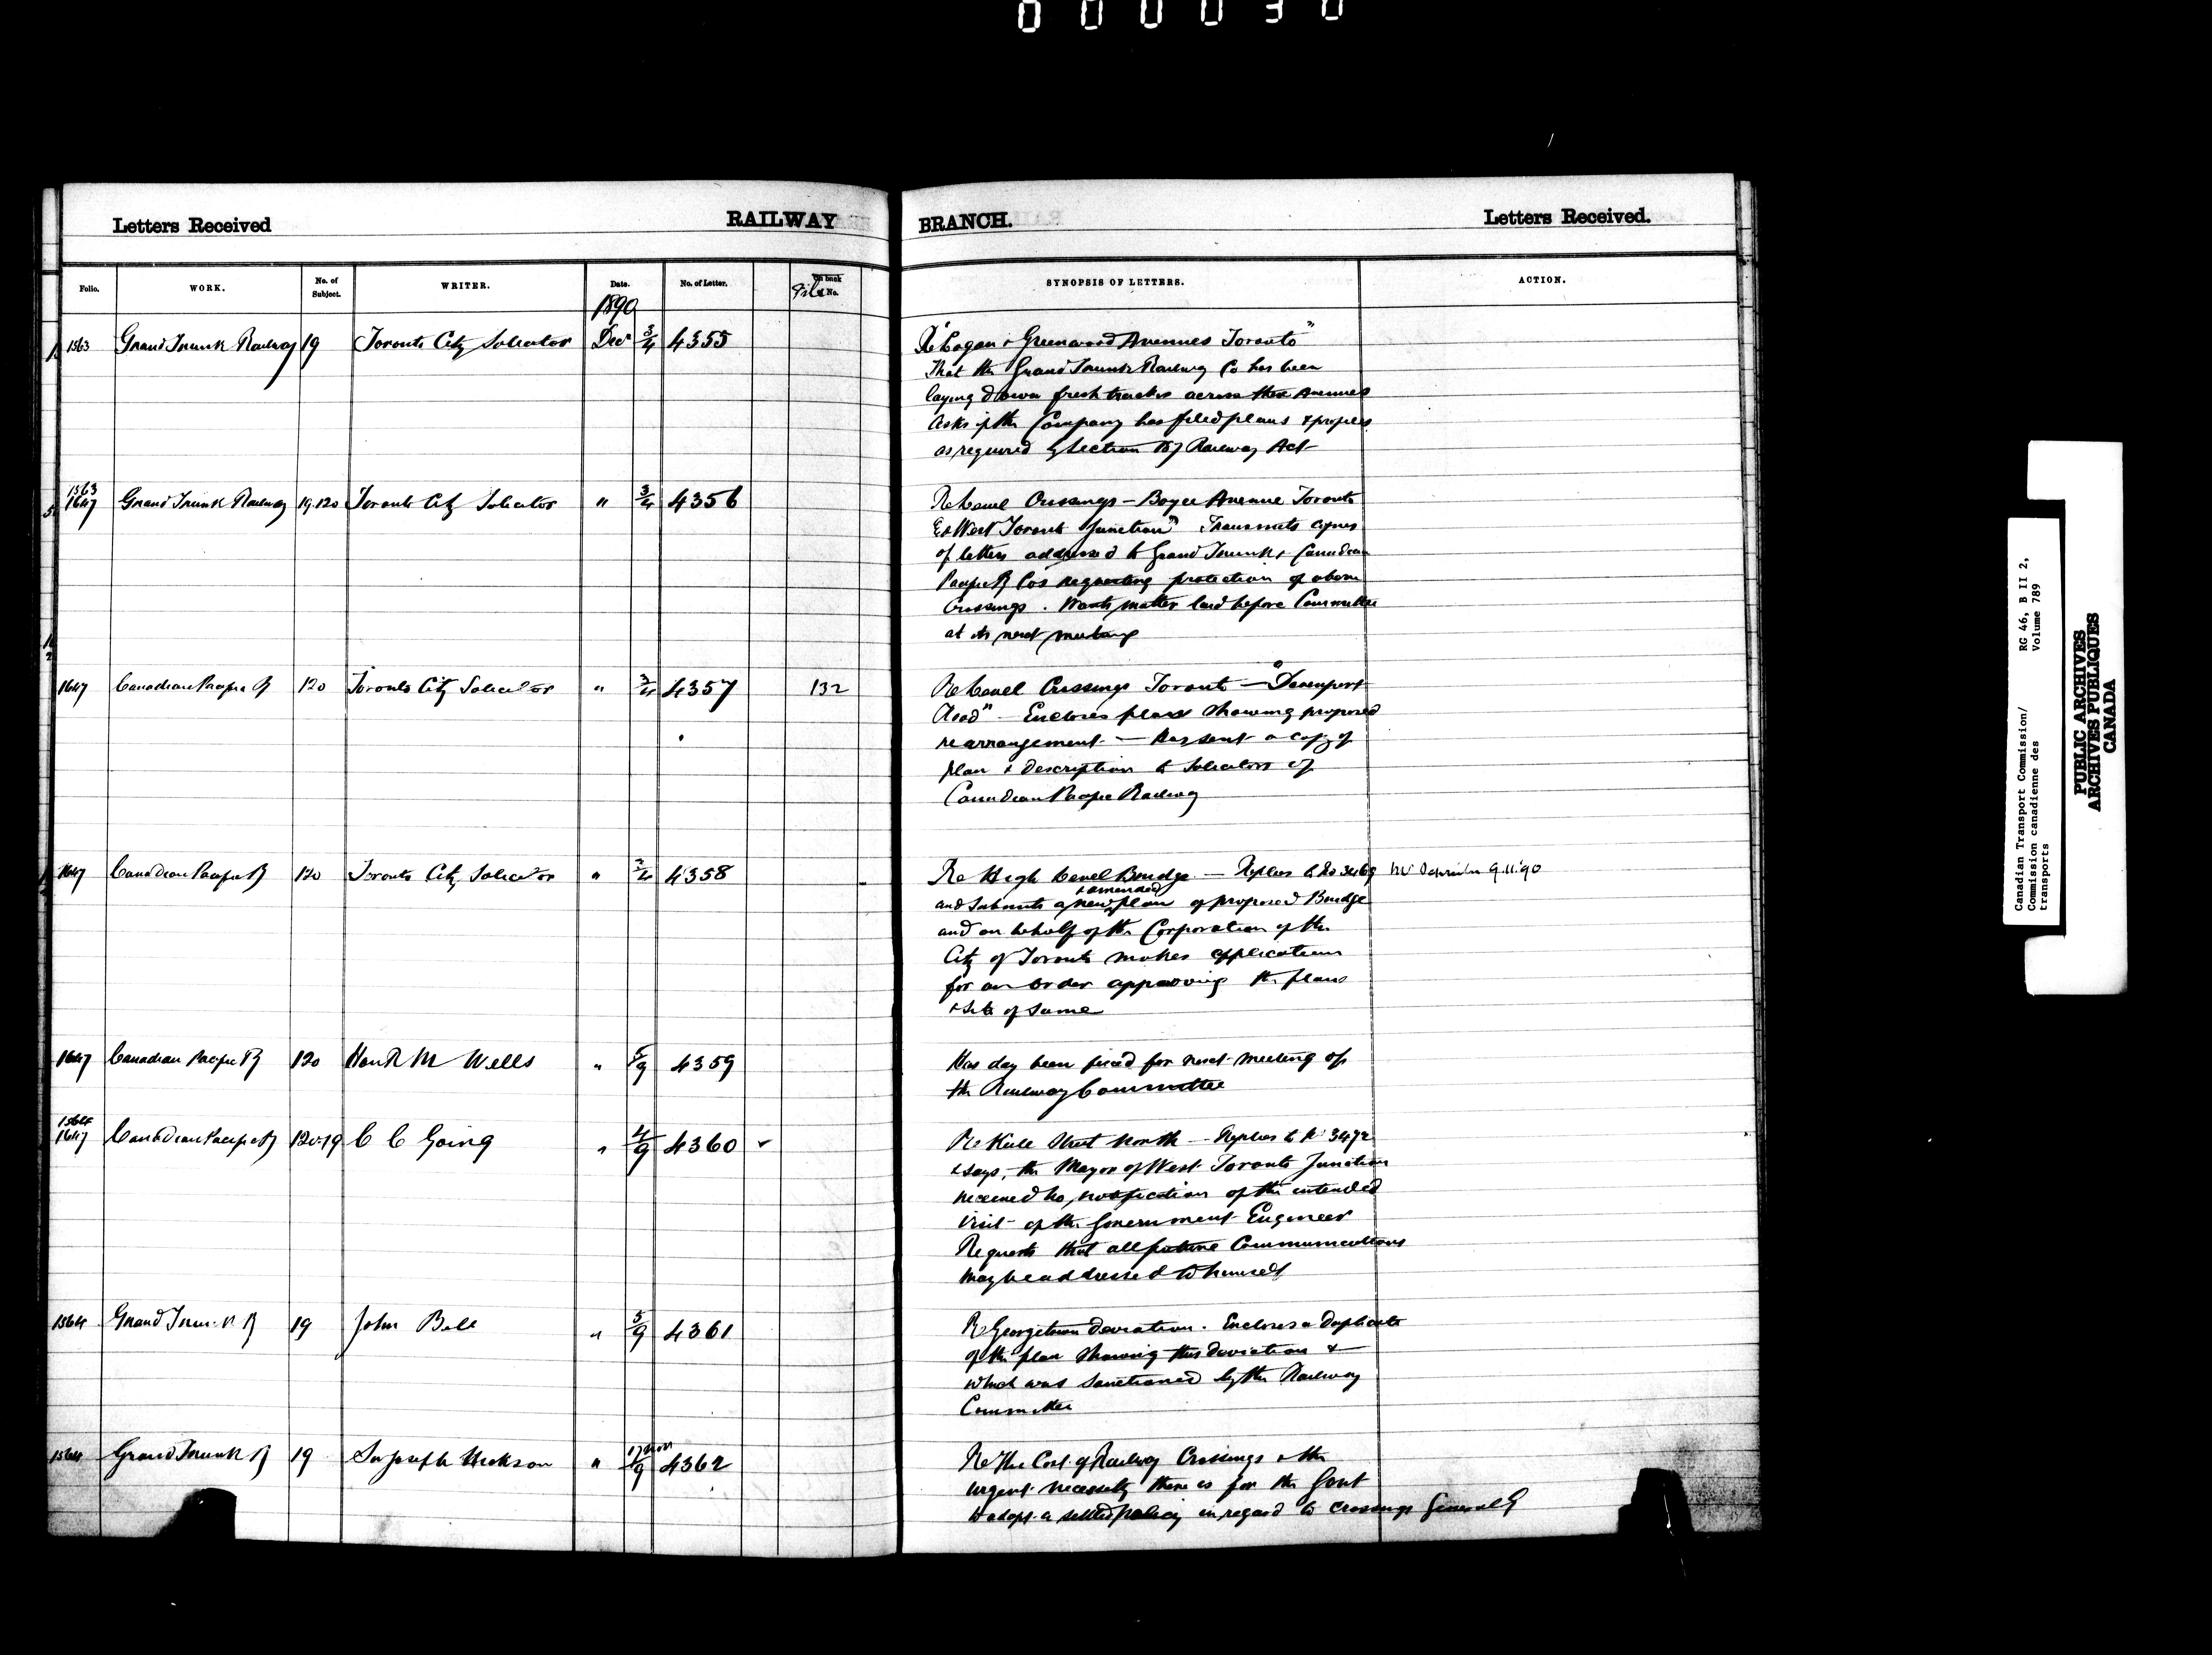 000030
Letters Received RAILWAY BRANCH. Letters Received.
Folio. WORK. No. of Subject. WRITER. Date. No. of Letter. File No. SYNOPSIS OF LETTERS. ACTION.
1890
1563 Grand Trunk Railway 19 Toronto City Solicitor Decr 3/4 4355 Re "Logan & Greenwood Avenues Toronto"
That the Grand Trunk Railway Co has been
laying down fresh tracks across these Avenues
Asks if the Company has filed plans & profiles
as required by Section Railway Act
1563
1647 Grand Trunk Railway 19.120 Toronto City Solicitor " 3/4 4356 Re Level Crossings — Boyce Avenue Toronto
& West Toronto Junction" Transmits copies
of letters addressed to Grand Trunk & Canadian
Pacific R Cos requesting protection of above
Crossings. Wants matter laid before Committee
at its next meeting
1647 Canadian Pacific Ry 120 Toronto City Solicitor " 3/4 4357 132 Re Level Crossings Toronto — "Davenport
Road" — Encloses plans showing proposed
rearrangement — Has sent a copy of
plan & description to Solicitors of
Canadian Pacific Railway
1647 Canadian Pacific Ry 120 Toronto City Solicitor " 4358 Re High Level Bridge — Replies to No 3469 9.11.90
and submits a new & amended plan of proposed Bridge
and on behalf of the Corporation of the
City of Toronto makes application
for an order approving the plans
& site of same
1647 Canadian Pacific Ry 120 Hon R M Wells " 5/9 4359 Has day been fixed for next meeting of
the Railway Committee
1564
1647 Canadian Pacific Ry 120-19 C C Going " 4/9 4360 ✓ Re Keele Street North — Replies to No 3472
& says, the Mayor of West Toronto Junction
received no notification of the intended
visit of the Government Engineer
Requests that all future Communications
may be addressed to himself
1564 Grand Trunk Ry 19 John Bell " 5/9 4361 Re Georgetown deviation. Encloses a duplicate
of the plan showing this deviation &
which was sanctioned by the Railway
Committee
1564 Grand Trunk Ry 19 Sir Joseph Hickson " 17 Nov/9 4362 Re The Cost of Railway Crossings & the
urgent necessity there is for the Govt
to adopt a settled policy in regard to crossings Generally
Canadian Transport Commission/
Commission canadienne des
transports
RG 46, B II 2,
Volume 789
PUBLIC ARCHIVES
ARCHIVES PUBLIQUES
CANADA